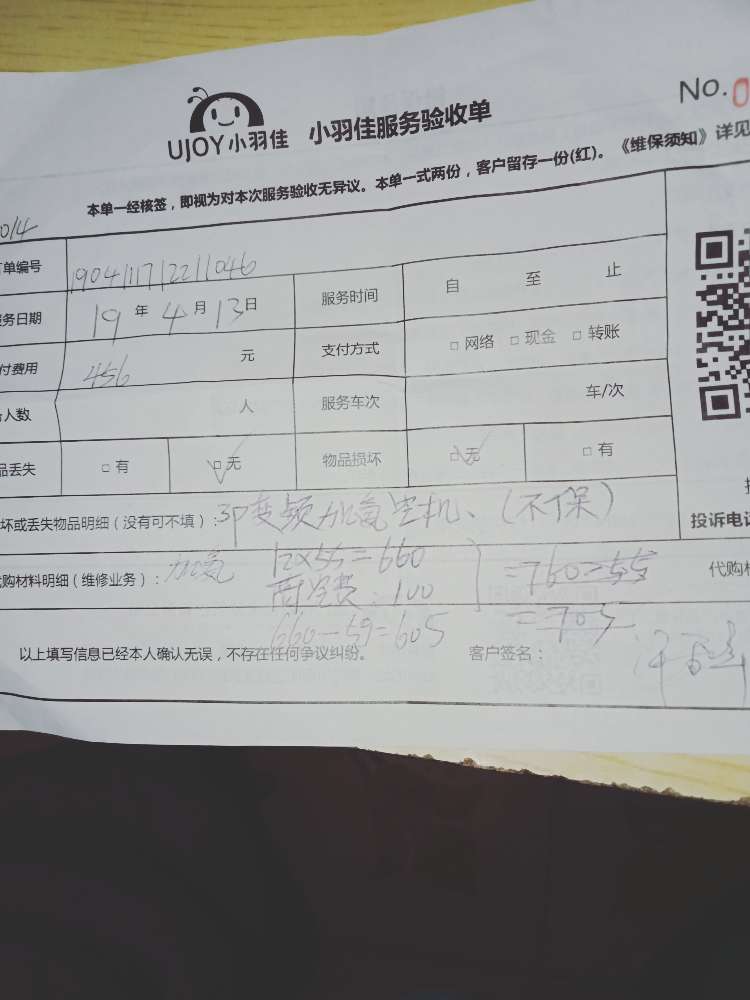 No.0
UJOY小羽佳 小羽佳服务验收单
本单一经核签，即视为对本次服务验收无异议。本单一式两份，客户留存一份(红)。《维保须知》详见
单编号 1904111712211046
务日期 19 年 4 月 13 日 服务时间 自 至 止
付费用 456 元 支付方式 □ 网络 □ 现金 □ 转账
人数 人 服务车次 车/次
品丢失 □ 有 □ 无 物品损坏 □ 无 □ 有
坏或丢失物品明细（没有可不填）：3P变频加氟空机、（不保）
投诉电话
代购材料明细（维修业务）：加氟 12×55=660 =760-55 代购材
费：100 =705
660-59=605
以上填写信息已经本人确认无误，不存在任何争议纠纷。 客户签名：